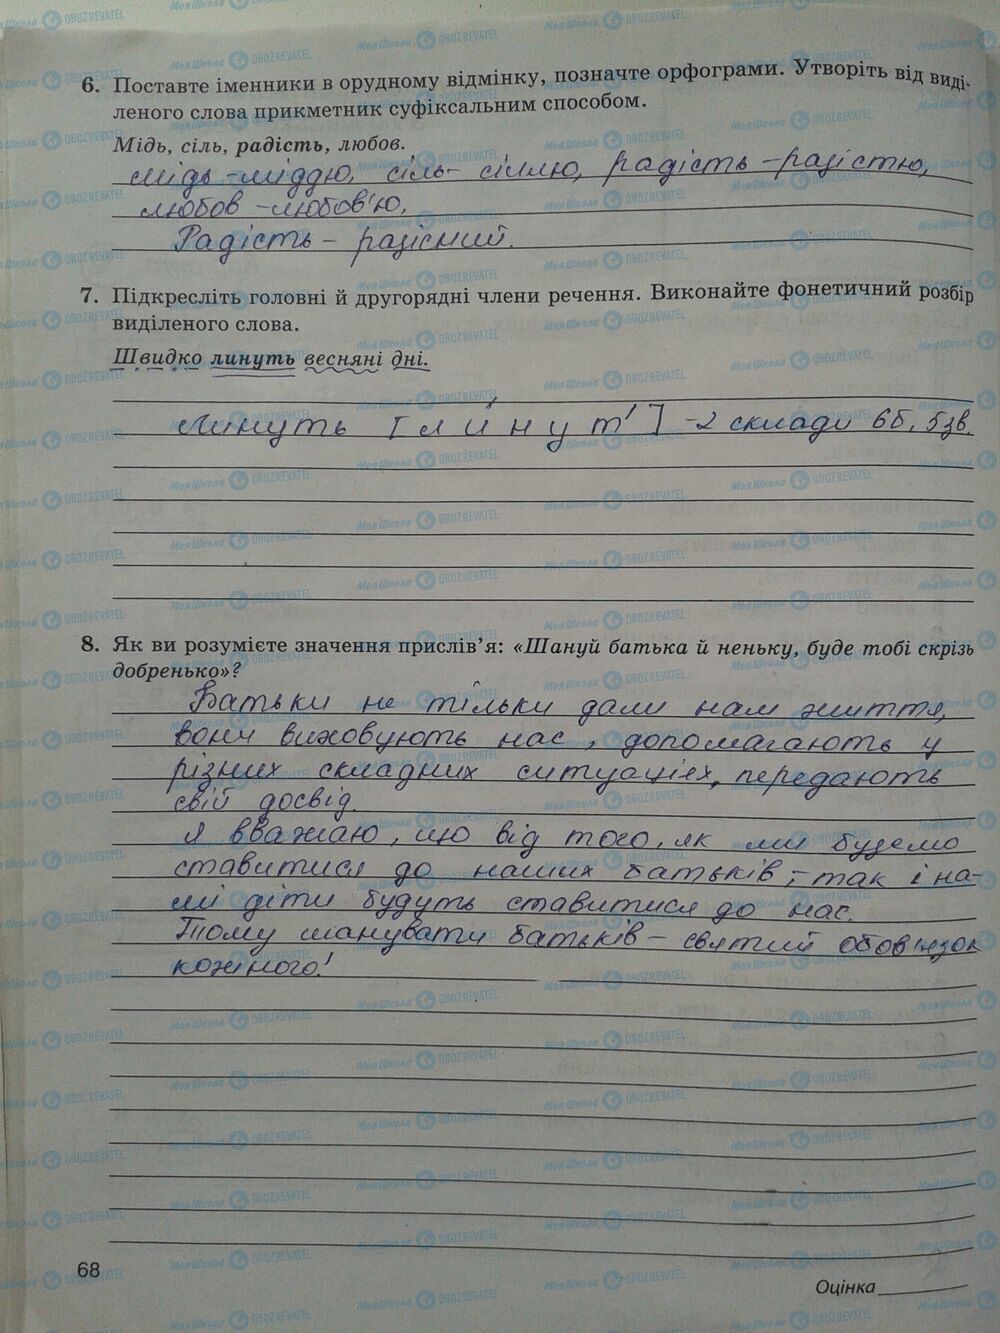 6. Поставте іменники в орудному відмінку, позначте орфограми. Утворіть від виді-
леного слова прикметник суфіксальним способом.
Мідь, сіль, радість, любов.
мідь - міддю, сіль - сіллю, радість - радістю,
любов - любов'ю.
Радість - радісний.
7. Підкресліть головні й другорядні члени речення. Виконайте фонетичний розбір
виділеного слова.
Швидко линуть весняні дні.
Линуть [лѝнут'] - 2 склади 6б, 5 зв.
8. Як ви розумієте значення прислів'я: «Шануй батька й неньку, буде тобі скрізь
добренько»?
Батьки не тільки дали нам життя,
вони виховують нас, допомагають у
різних складних ситуаціях, передають
свій досвід.
Я вважаю, що від того, як ми будемо
ставитися до наших батьків, так і на-
ші діти будуть ставитися до нас.
Тому шанувати батьків - святий обов'язок
кожного!
68
Оцінка
МояШкола OBOZREVATEL